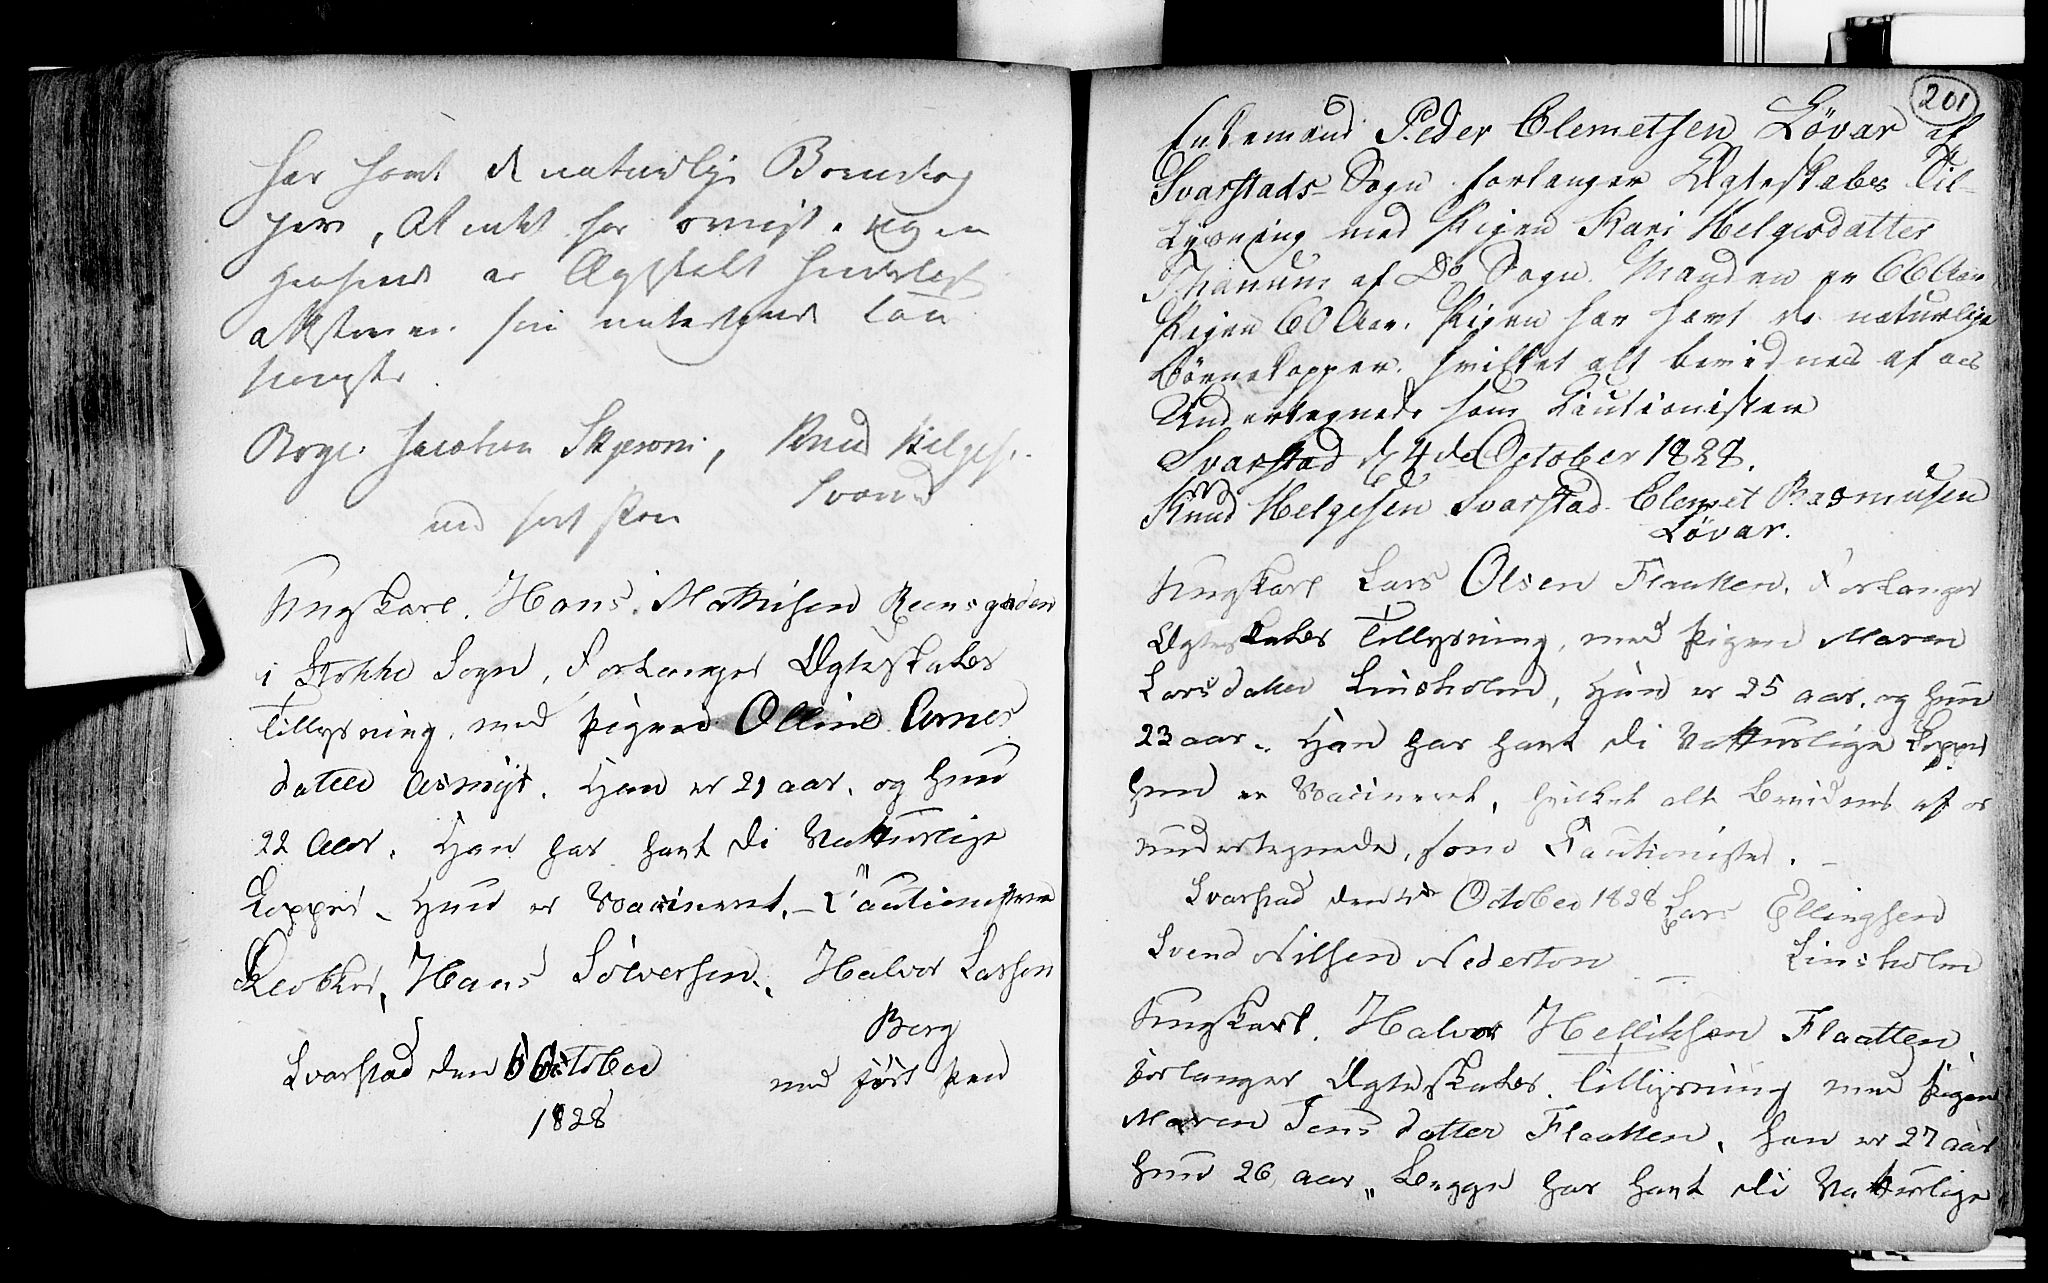 har havt de naturlige Bornekop
per, At intet
er Ægteskabet
som undertegnede Cau
tionister
Børge Jacobsen, Knud Helgesen
Svarstad
med ført Pen
Ungkarl. Hans. Mathisen Reensgorden
i Stokke Sogn, Forlanger Ægteskabes
Tillysning. med Pigen Olline Arnes
datter Asmyr. Han er 21 aar. og Hun
22 Aar. Han har havt di Natturlige
Kopper – Hun er Vacineret. – Cautionisterne
Klokker, Hans Sølversen., Halvor Larsen
Berg
Svarstad den 6 October med ført Pen
1828
201
Enkemand Peder Clemetsen Løvar af
Svarstads Sogn forlanger Ægteskabes Til-
Lysning med Pigen Kari Helgesdatter
Manum af Do Sogn. Manden er 66 Aar
Pigen 60 Aar. Pigen har havt de naturlige
Børnekopper. hvilket alt bevidnes af os
Undertegnede som Cautionister
Svarstad d 4de October 1828.
Knud Helgesen Svarstad. Clemet Rasmusen
Løvar.
Ungkarl Lars Olsen Flaatten. Forlanger
Ægteskabes Tillysning, med Pigen Maren
Larsdatter Linsholm, Han er 25 aar. og Hun
23 aar. Han har havt di Natturlige Kopper
Hun er Vacineret, hvilket alt Bevidnes af os
undertegnede, som Cautionister. –
Svarstad den 4de October 1828 Lars Ellingsen
Svend Nilsen Nederton – Linsholm
Ungkarl. Halvor Helliksen Flaatten
forlanger Ægteskabes. Tillysning med Pigen
Maren Jens datter Flaatten, han er 27 aar
Hun 26 aar „ Begge har havt di Natturlige